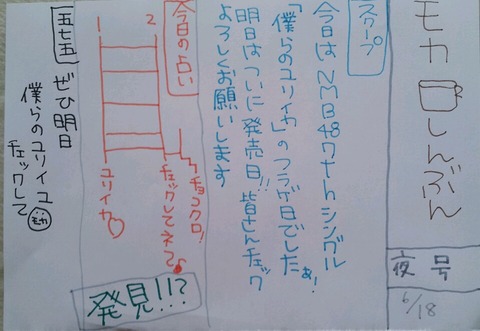 モカしんぶん
夜号
6/18
スクープ
今日はNMB48 7thシングル
「僕らのユリイカ」のフラゲ日でしたぁ!
明日はついに発売日!!皆さんチェック
よろしくお願いします
今日の占い
2
1
チョコクロ!
チェックしてネ♪
ユリイカ♡
発見!!?
五七五
ぜひ明日
僕らのユリイユ
モカ
チェックして